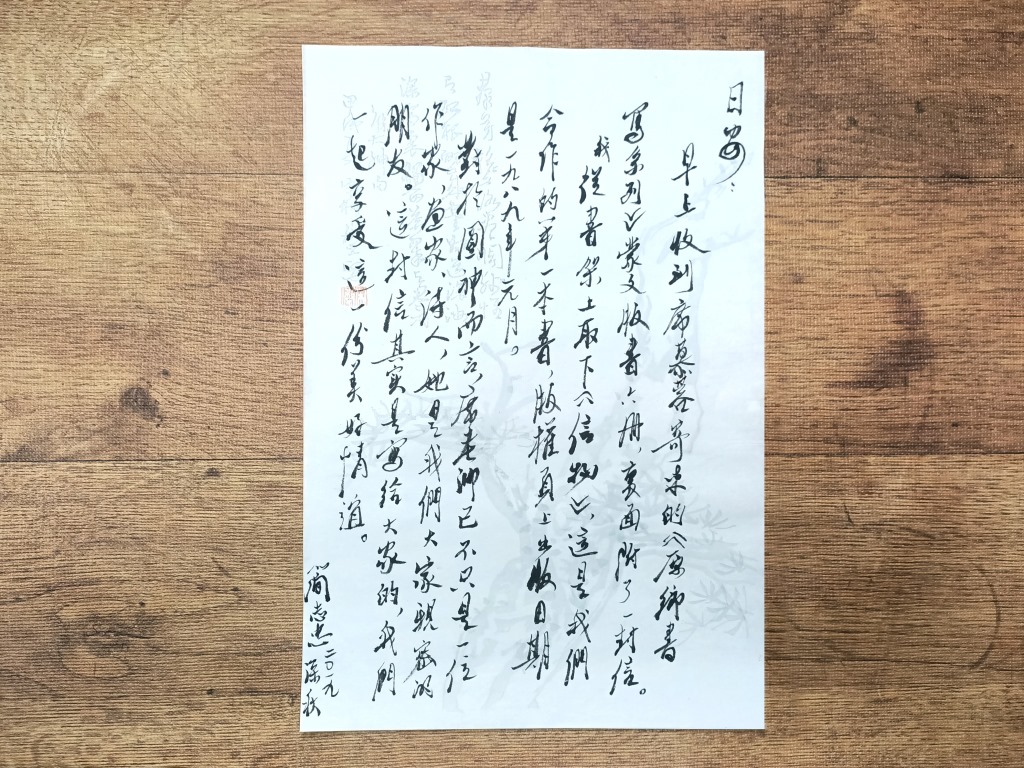 日安：
早上收到席慕蓉寄來的〈原鄉書
寫系列〉蒙文版書六冊，裏面附了一封信。
我從書架上取下〈信物〉，這是我們
合作的第一本書，版權頁上出版日期
是一九八九年元月。
對於圓神而言，席老師已不只是一位
作家，畫家，詩人，她是我們大家親密的
朋友。這封信其實是寫給大家的，我們
一起享受這一份美好情誼。
簡志忠 二〇一九 深秋